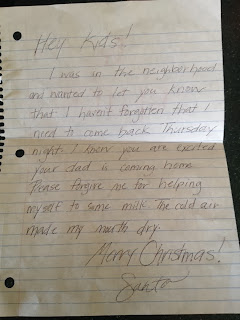 Hey Kids!
I was in the neighborhood
and wanted to let you know
that I hasn't forgotten that I
need to come back Thursday
night. I know you are excited
your dad is coming home.
Please forgive me for helping
myself to some milk. The cold air
made my mouth dry.
Merry Christmas!
Santa